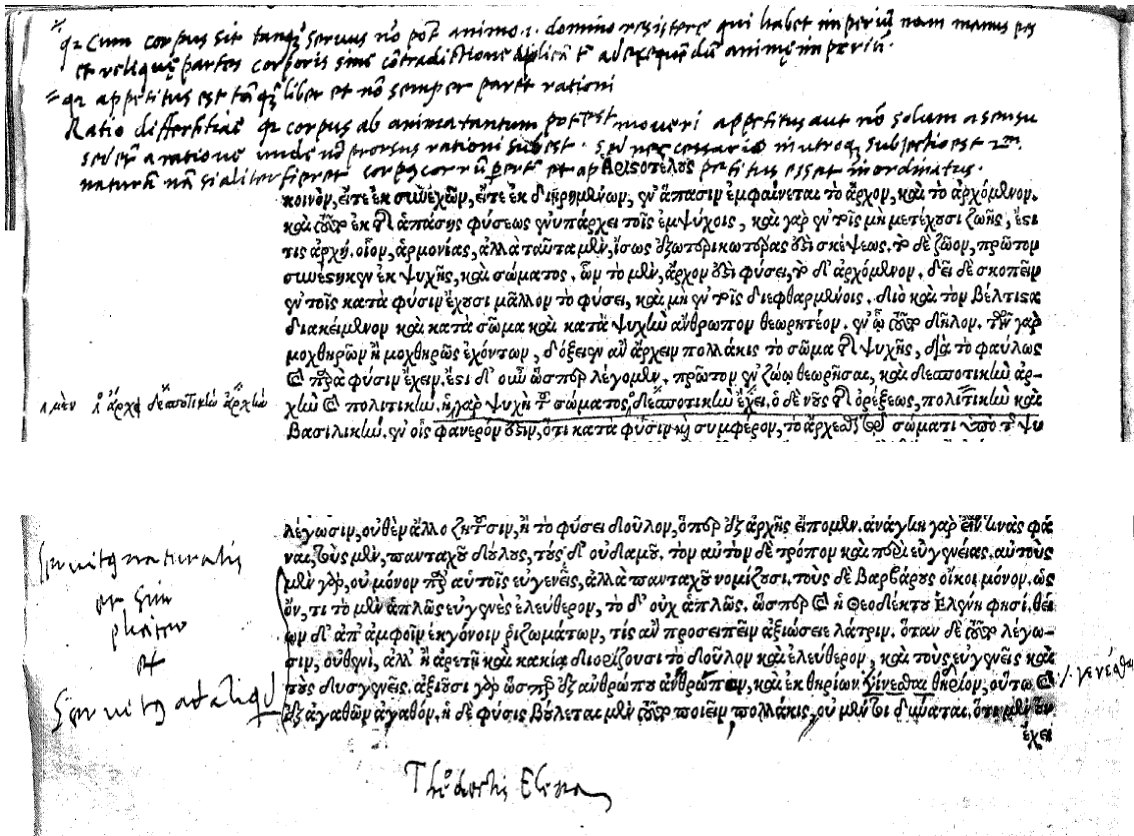 qz Cum corpus sit tanqz servus nō pōt animo .i. domino resistere qui habet imperiū nam manus pes
et reliquę partes corporis sine cōtradictione applicāt ad exequēdū animę imperiū.
qz appetitus est tāqz liber et nō semper paret rationi
Ratio differētiae qz corpus ab anima tantum potest moveri appetitus aut nō solum a sensu
sed etiā a ratione unde nō prorsus rationi subest.
naturā nā si aliter fieret corpus
ΑΡΙΣΟΤΕΛΟΥΣ
petitus esset inordinatus.
κοινὸν, εἴτε ἐκ συνεχῶν, εἴτε ἐκ διῃρημένων, ἐν ἅπασιν ἐμφαίνεται τὸ ἄρχον, καὶ τὸ ἀρχόμενον.
καὶ τοῦτο ἐκ τῆς ἁπάσης φύσεως ἐνυπάρχει τοῖς ἐμψύχοις, καὶ γὰρ ἐν τοῖς μὴ μετέχουσι ζωῆς, ἔστι
τις ἀρχή. οἷον, ἁρμονίας, ἀλλὰ ταῦτα μὲν, ἴσως ἐξωτερικωτέρας ἐστὶ σκέψεως. τὸ δὲ ζῶον, πρῶτον
συνέστηκεν ἐκ ψυχῆς, καὶ σώματος. ὧν τὸ μὲν, ἄρχον ἐστὶ φύσει, τὸ δ' ἀρχόμενον. δεῖ δὲ σκοπεῖν
ἐν τοῖς κατὰ φύσιν ἔχουσι μᾶλλον τὸ φύσει, καὶ μὴ ἐν τοῖς διεφθαρμένοις. διὸ καὶ τὸν βέλτιστα
διακείμενον καὶ κατὰ σῶμα καὶ κατὰ ψυχὴν ἄνθρωπον θεωρητέον. ἐν ᾧ τοῦτο δῆλον. τῶν γὰρ
μοχθηρῶν ἢ μοχθηρῶς ἐχόντων, δόξειεν ἂν ἄρχειν πολλάκις τὸ σῶμα τῆς ψυχῆς, διὰ τὸ φαύλως
καὶ παρὰ φύσιν ἔχειν. ἔστι δ' οὖν ὥσπερ λέγομεν. πρῶτον ἐν ζώῳ θεωρῆσαι, καὶ δεσποτικὴν ἀρ-
μὲν ἀρχὴ δεσποτικὴν ἀρχὴν
χὴν καὶ πολιτικήν. ἡ γὰρ ψυχὴ τοῦ σώματος, δεσποτικὴν ἔχει. ὁ δὲ νοῦς τῆς ὀρέξεως, πολιτικὴν καὶ
βασιλικήν. ἐν οἷς φανερόν ἐστιν, ὅτι κατὰ φύσιν καὶ συμφέρον, τὸ ἄρχεσθαι τῷ σώματι ὑπὸ τῆς ψυ
λέγωσιν, οὐθὲν ἄλλο ζητοῦσιν, ἢ τὸ φύσει δοῦλον, ὅπερ ἐξ ἀρχῆς εἴπομεν. ἀνάγκη γὰρ εἶναι τινὰς φά
ναι, τοὺς μὲν, πανταχοῦ δούλους, τοὺς δ' οὐδαμοῦ. τὸν αὐτὸν δὲ τρόπον καὶ περὶ εὐγενείας. αὑτοὺς
μὲν γὰρ, οὐ μόνον παρ' αὑτοῖς εὐγενεῖς, ἀλλὰ πανταχοῦ νομίζουσι, τοὺς δὲ βαρβάρους οἴκοι μόνον. ὡς
ὄν, τι τὸ μὲν ἁπλῶς εὐγενὲς ἐλεύθερον, τὸ δ' οὐχ ἁπλῶς. ὥσπερ καὶ ἡ Θεοδέκτου Ἑλένη φησί. θεί
ων δ' ἀπ' ἀμφοῖν ἐκγόνοιν ῥιζωμάτων, τίς ἂν προσειπεῖν ἀξιώσειε λάτριν. ὅταν δὲ τοῦτο λέγω-
σιν, οὐθενὶ, ἀλλ' ἢ ἀρετῇ καὶ κακίᾳ διορίζουσι τὸ δοῦλον καὶ ἐλεύθερον, καὶ τοὺς εὐγενεῖς καὶ
τοὺς δυσγενεῖς. ἀξιοῦσι γὰρ ὥσπερ ἐξ ἀνθρώπου ἄνθρωπον, καὶ ἐκ θηρίων γίνεσθαι θηρίον, οὕτω καὶ
γενέσθαι
ἐξ ἀγαθῶν ἀγαθόν. ἡ δὲ φύσις βούλεται μὲν τοῦτο ποιεῖν, πολλάκις, οὐ μέντοι δύναται. ὅτι μὲν οὖν
ἔχει
Servitus naturalis
Servitus
Theodectis Elena